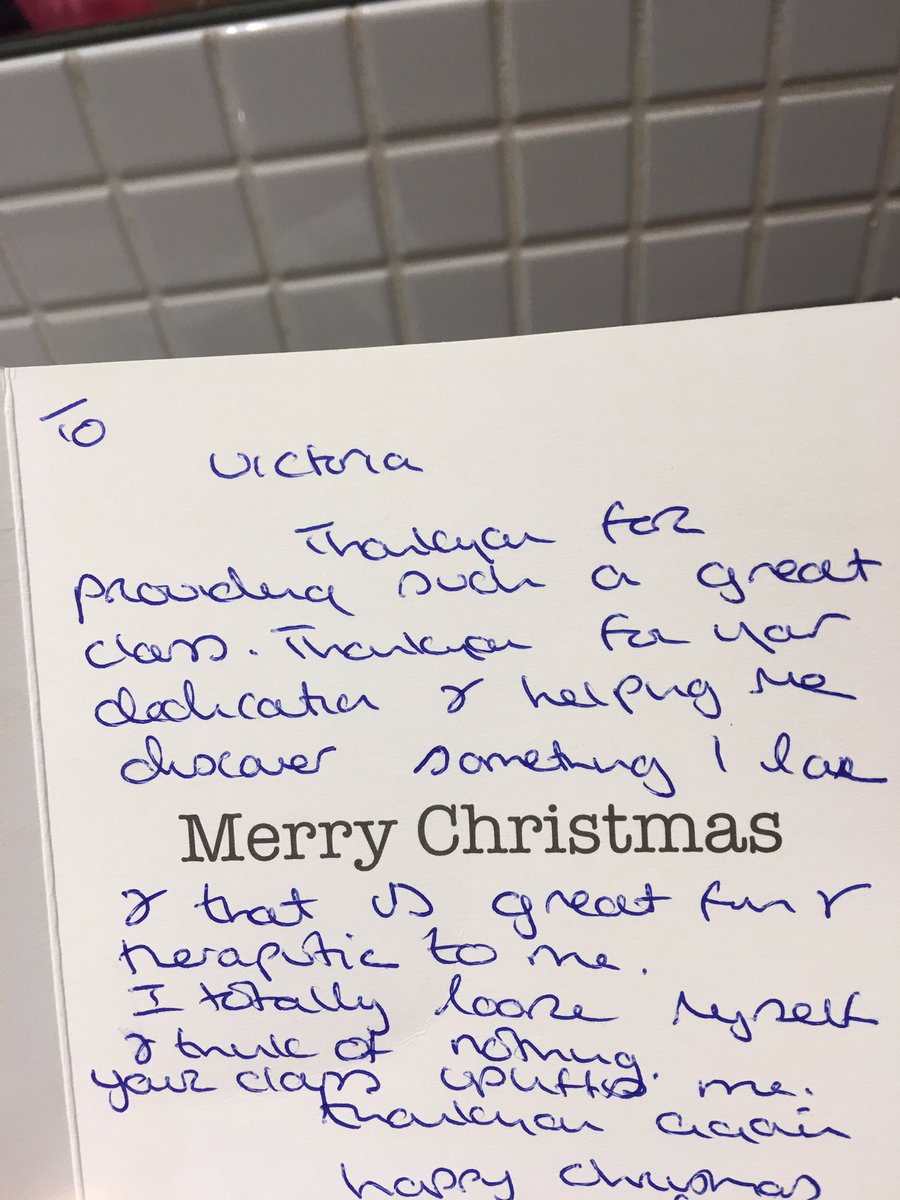 To
Victoria
Thankyou for
providing such a great
class. Thankyou for your
dedication & helping me
discover something I love
Merry Christmas
& that is great fun &
theraputic to me.
I totally loose myself
& think of nothing.
your class uplifts me.
thankyou again
happy christmas